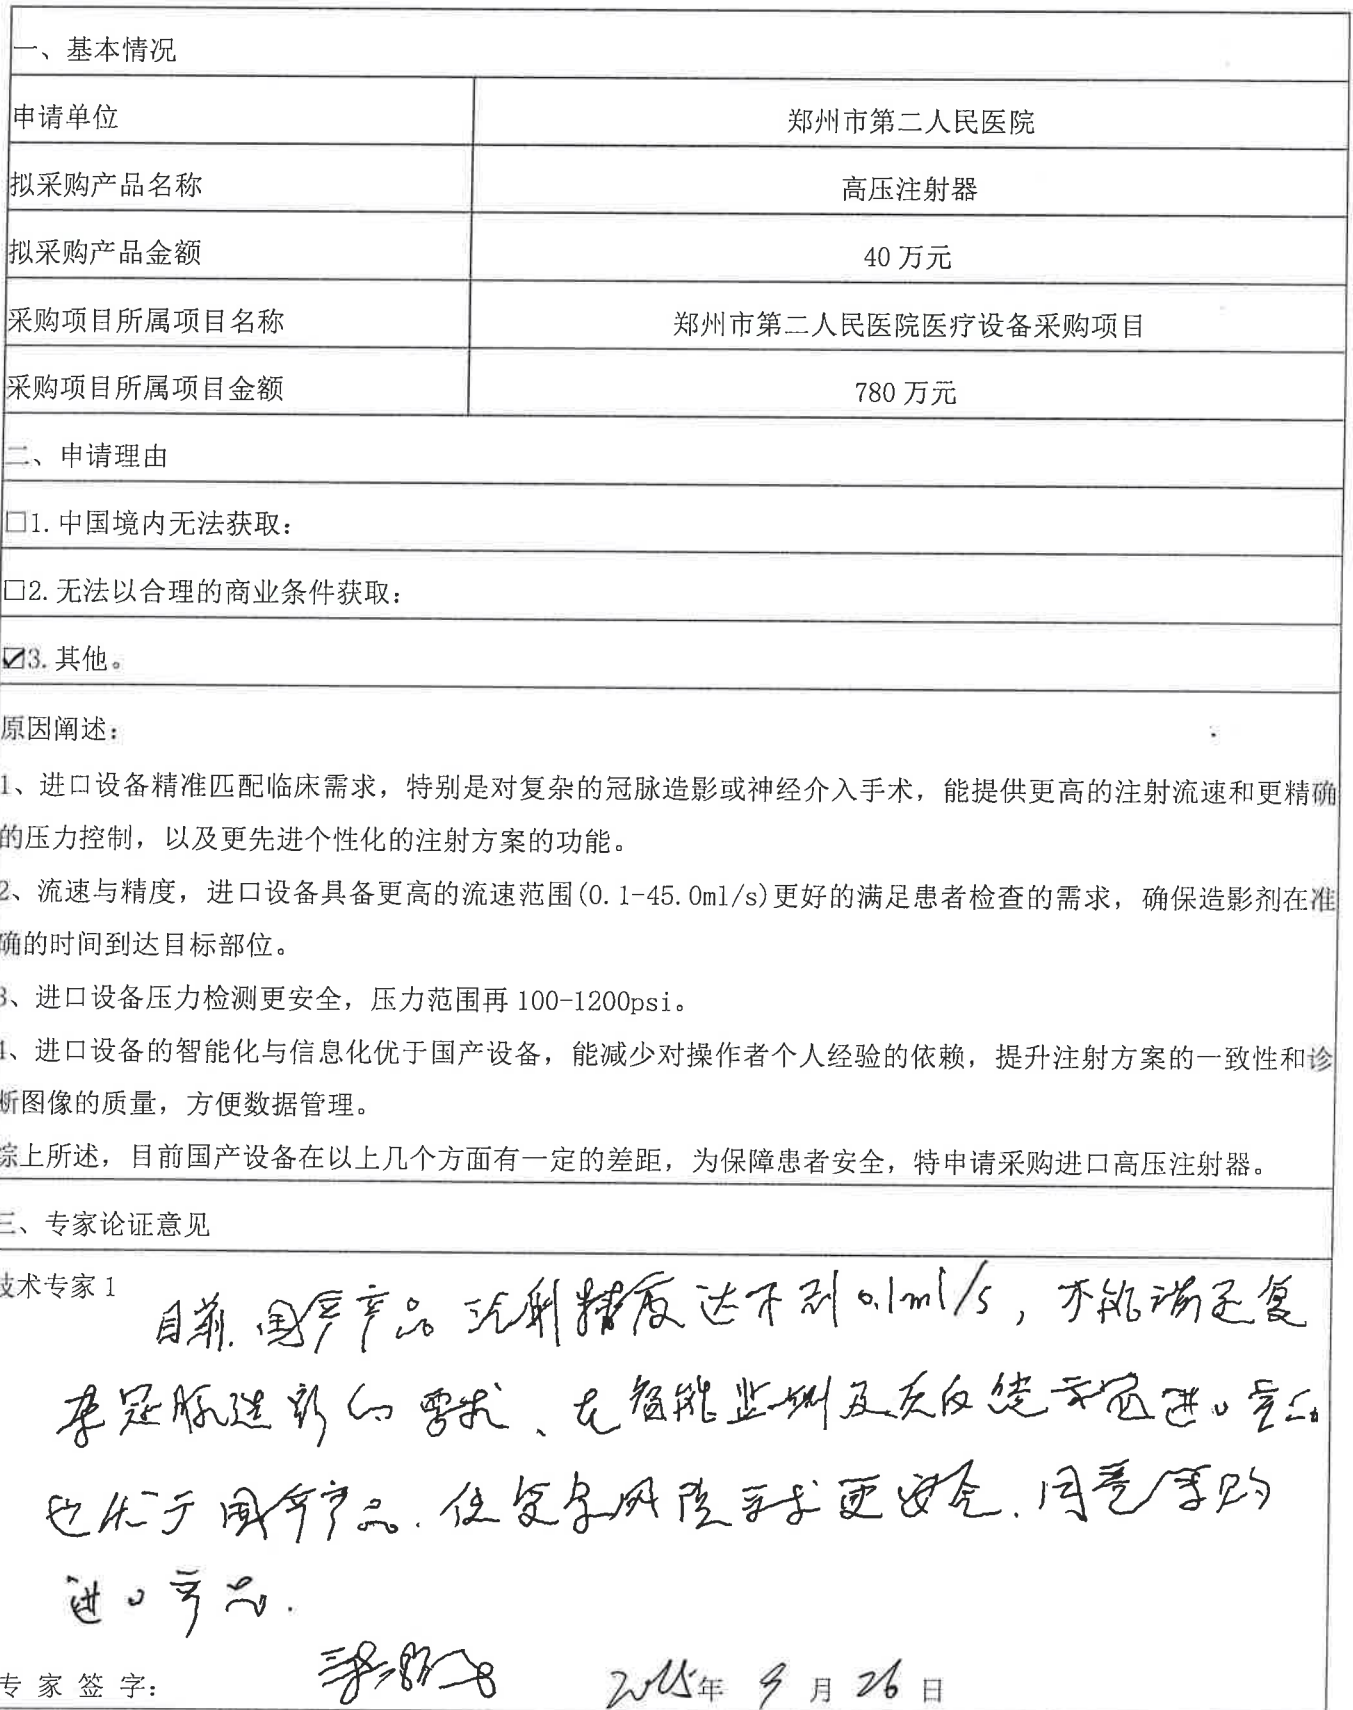 一、基本情况
申请单位 郑州市第二人民医院
拟采购产品名称 高压注射器
拟采购产品金额 40 万元
采购项目所属项目名称 郑州市第二人民医院医疗设备采购项目
采购项目所属项目金额 780 万元
二、申请理由
□1.中国境内无法获取：
□2.无法以合理的商业条件获取：
☑3.其他。
原因阐述：
1、进口设备精准匹配临床需求，特别是对复杂的冠脉造影或神经介入手术，能提供更高的注射流速和更精确
的压力控制，以及更先进个性化的注射方案的功能。
2、流速与精度，进口设备具备更高的流速范围(0.1-45.0ml/s)更好的满足患者检查的需求，确保造影剂在准
确的时间到达目标部位。
3、进口设备压力检测更安全，压力范围再 100-1200psi。
4、进口设备的智能化与信息化优于国产设备，能减少对操作者个人经验的依赖，提升注射方案的一致性和诊
断图像的质量，方便数据管理。
综上所述，目前国产设备在以上几个方面有一定的差距，为保障患者安全，特申请采购进口高压注射器。
三、专家论证意见
技术专家 1
目前国产产品注射精度达不到0.1ml/s，不能满足复
杂冠脉造影的需求、在智能监测及反馈方面进口产品
也优于国产产品.使复杂风险手术更安全.同意采购
进口产品.
专 家 签 字： 2025年 9 月 26 日